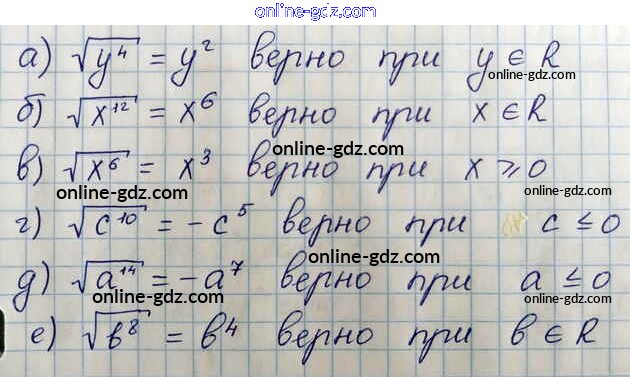 online-gdz.com
а) √y⁴ = y² верно при y ∈ R
online-gdz.com
б) √x¹² = x⁶ верно при x ∈ R
online-gdz.com
в) √x⁶ = x³ верно при x ⩾ 0
online-gdz.com online-gdz.com
г) √c¹⁰ = -c⁵ верно при c ≤ 0
online-gdz.com
д) √a¹⁴ = -a⁷ верно при a ≤ 0
online-gdz.com online-gdz.com
е) √b⁸ = b⁴ верно при b ∈ R